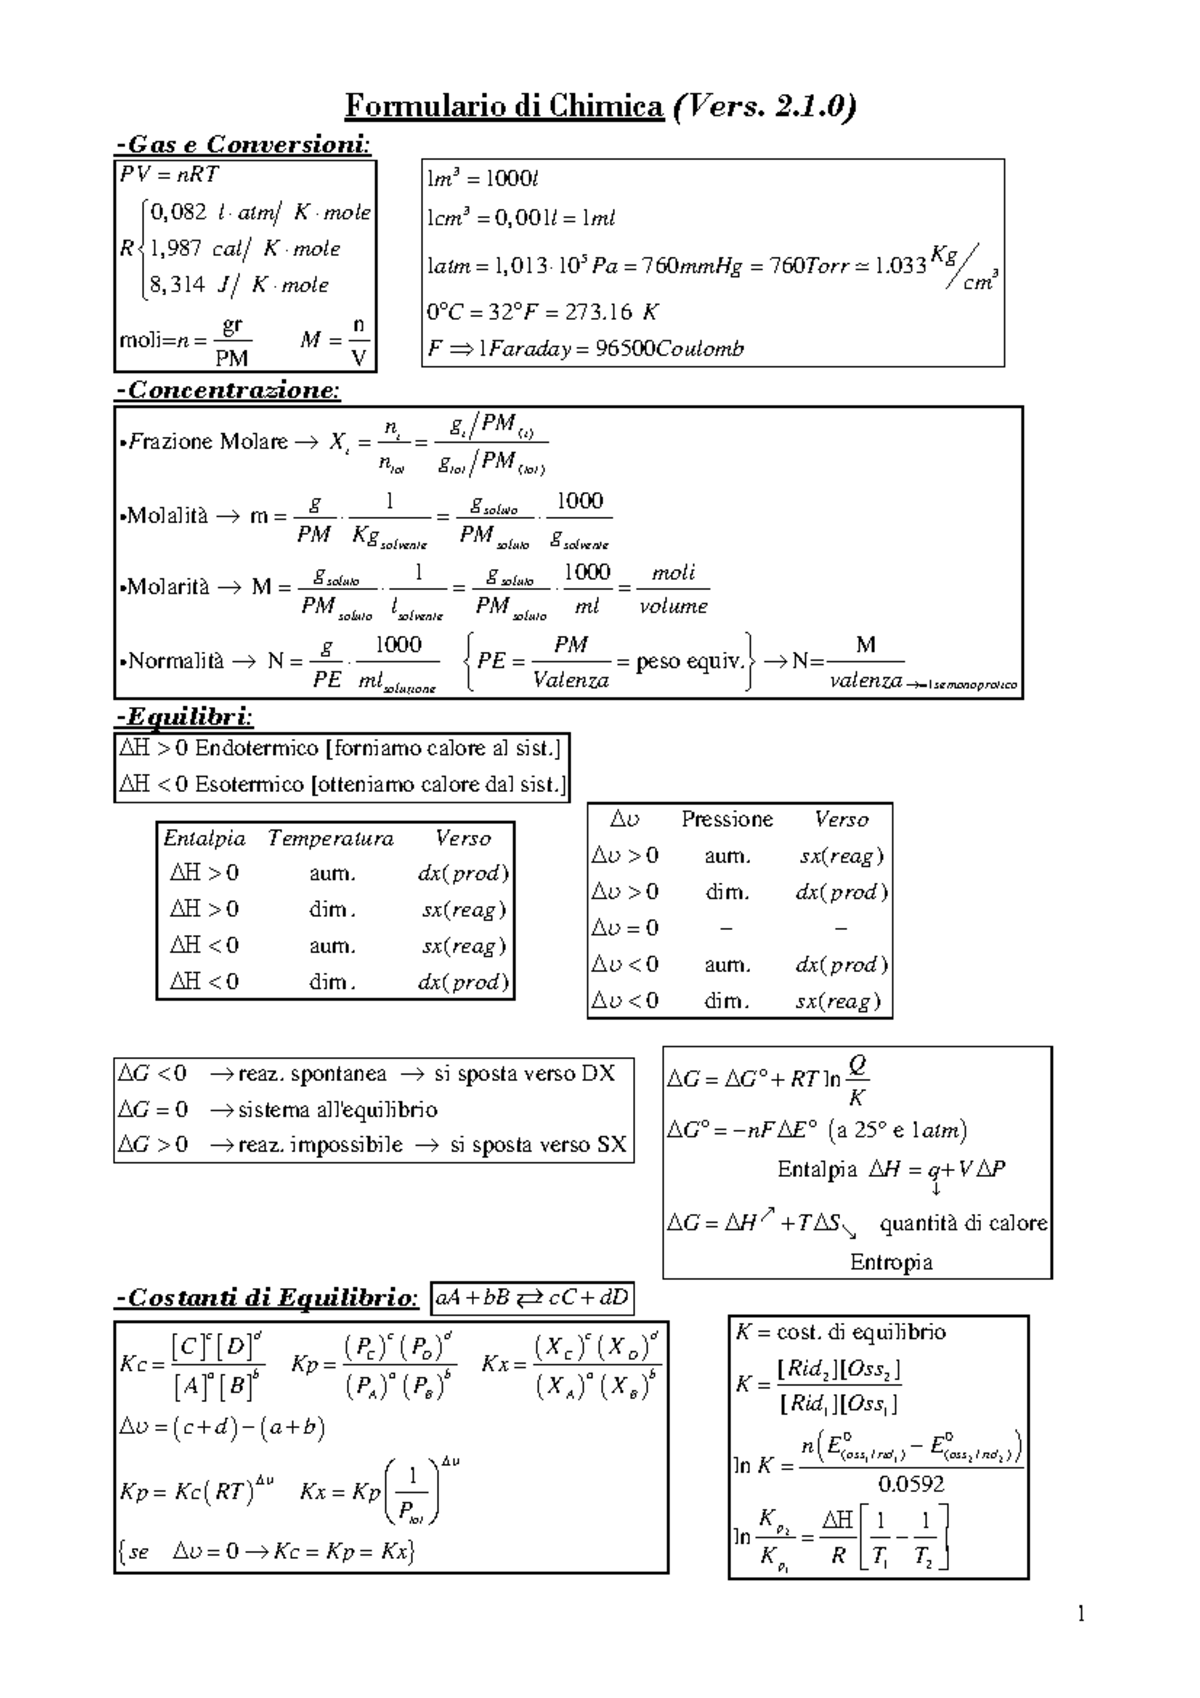 Formulario di Chimica (Vers. 2.1.0)
-Gas e Conversioni:
PV = nRT
R { 0,082 l · atm/ K · mole
1,987 cal/ K · mole
8,314 J/ K · mole
moli=n = gr/PM    M = n/V
1m³ = 1000l
1cm³ = 0,001l = 1ml
1atm = 1,013· 10⁵ Pa = 760mmHg = 760Torr ≃ 1.033 Kg/cm³
0°C = 32°F = 273.16 K
F ⇒ 1Faraday = 96500Coulomb
-Concentrazione:
•Frazione Molare → X_i = n_i/n_tot = (g_i/PM_(i))/(g_tot/PM_(tot))
•Molalità → m = g/PM · 1/Kg_solvente = g_soluto/PM_soluto · 1000/g_solvente
•Molarità → M = g_soluto/PM_soluto · 1/l_solvente = g_soluto/PM_soluto · 1000/ml = moli/volume
•Normalità → N = g/PE · 1000/ml_soluzione { PE = PM/Valenza = peso equiv. } → N= M/valenza →=1se monoprotico
-Equilibri:
ΔH > 0 Endotermico [forniamo calore al sist.]
ΔH < 0 Esotermico [otteniamo calore dal sist.]
Entalpia Temperatura Verso
ΔH > 0 aum. dx(prod)
ΔH > 0 dim. sx(reag)
ΔH < 0 aum. sx(reag)
ΔH < 0 dim. dx(prod)
Δυ Pressione Verso
Δυ > 0 aum. sx(reag)
Δυ > 0 dim. dx(prod)
Δυ = 0 – –
Δυ < 0 aum. dx(prod)
Δυ < 0 dim. sx(reag)
ΔG < 0 → reaz. spontanea → si sposta verso DX
ΔG = 0 → sistema all'equilibrio
ΔG > 0 → reaz. impossibile → si sposta verso SX
ΔG = ΔG° + RT ln Q/K
ΔG° = −nFΔE° (a 25° e 1atm)
Entalpia ΔH = q + VΔP
↓
ΔG = ΔH↗ + TΔS↘ quantità di calore
Entropia
-Costanti di Equilibrio: aA + bB ⇄ cC + dD
Kc = [C]^c [D]^d / [A]^a [B]^b    Kp = (P_C)^c (P_D)^d / (P_A)^a (P_B)^b    Kx = (X_C)^c (X_D)^d / (X_A)^a (X_B)^b
Δυ = (c + d) − (a + b)
Kp = Kc(RT)^Δυ    Kx = Kp(1/P_tot)^Δυ
{se Δυ = 0 → Kc = Kp = Kx}
K = cost. di equilibrio
K = [Rid₂][Oss₂] / [Rid₁][Oss₁]
ln K = n(E⁰_(oss₁/rid₁) − E⁰_(oss₂/rid₂)) / 0.0592
ln K_p₂/K_p₁ = ΔH/R [1/T₁ − 1/T₂]
1